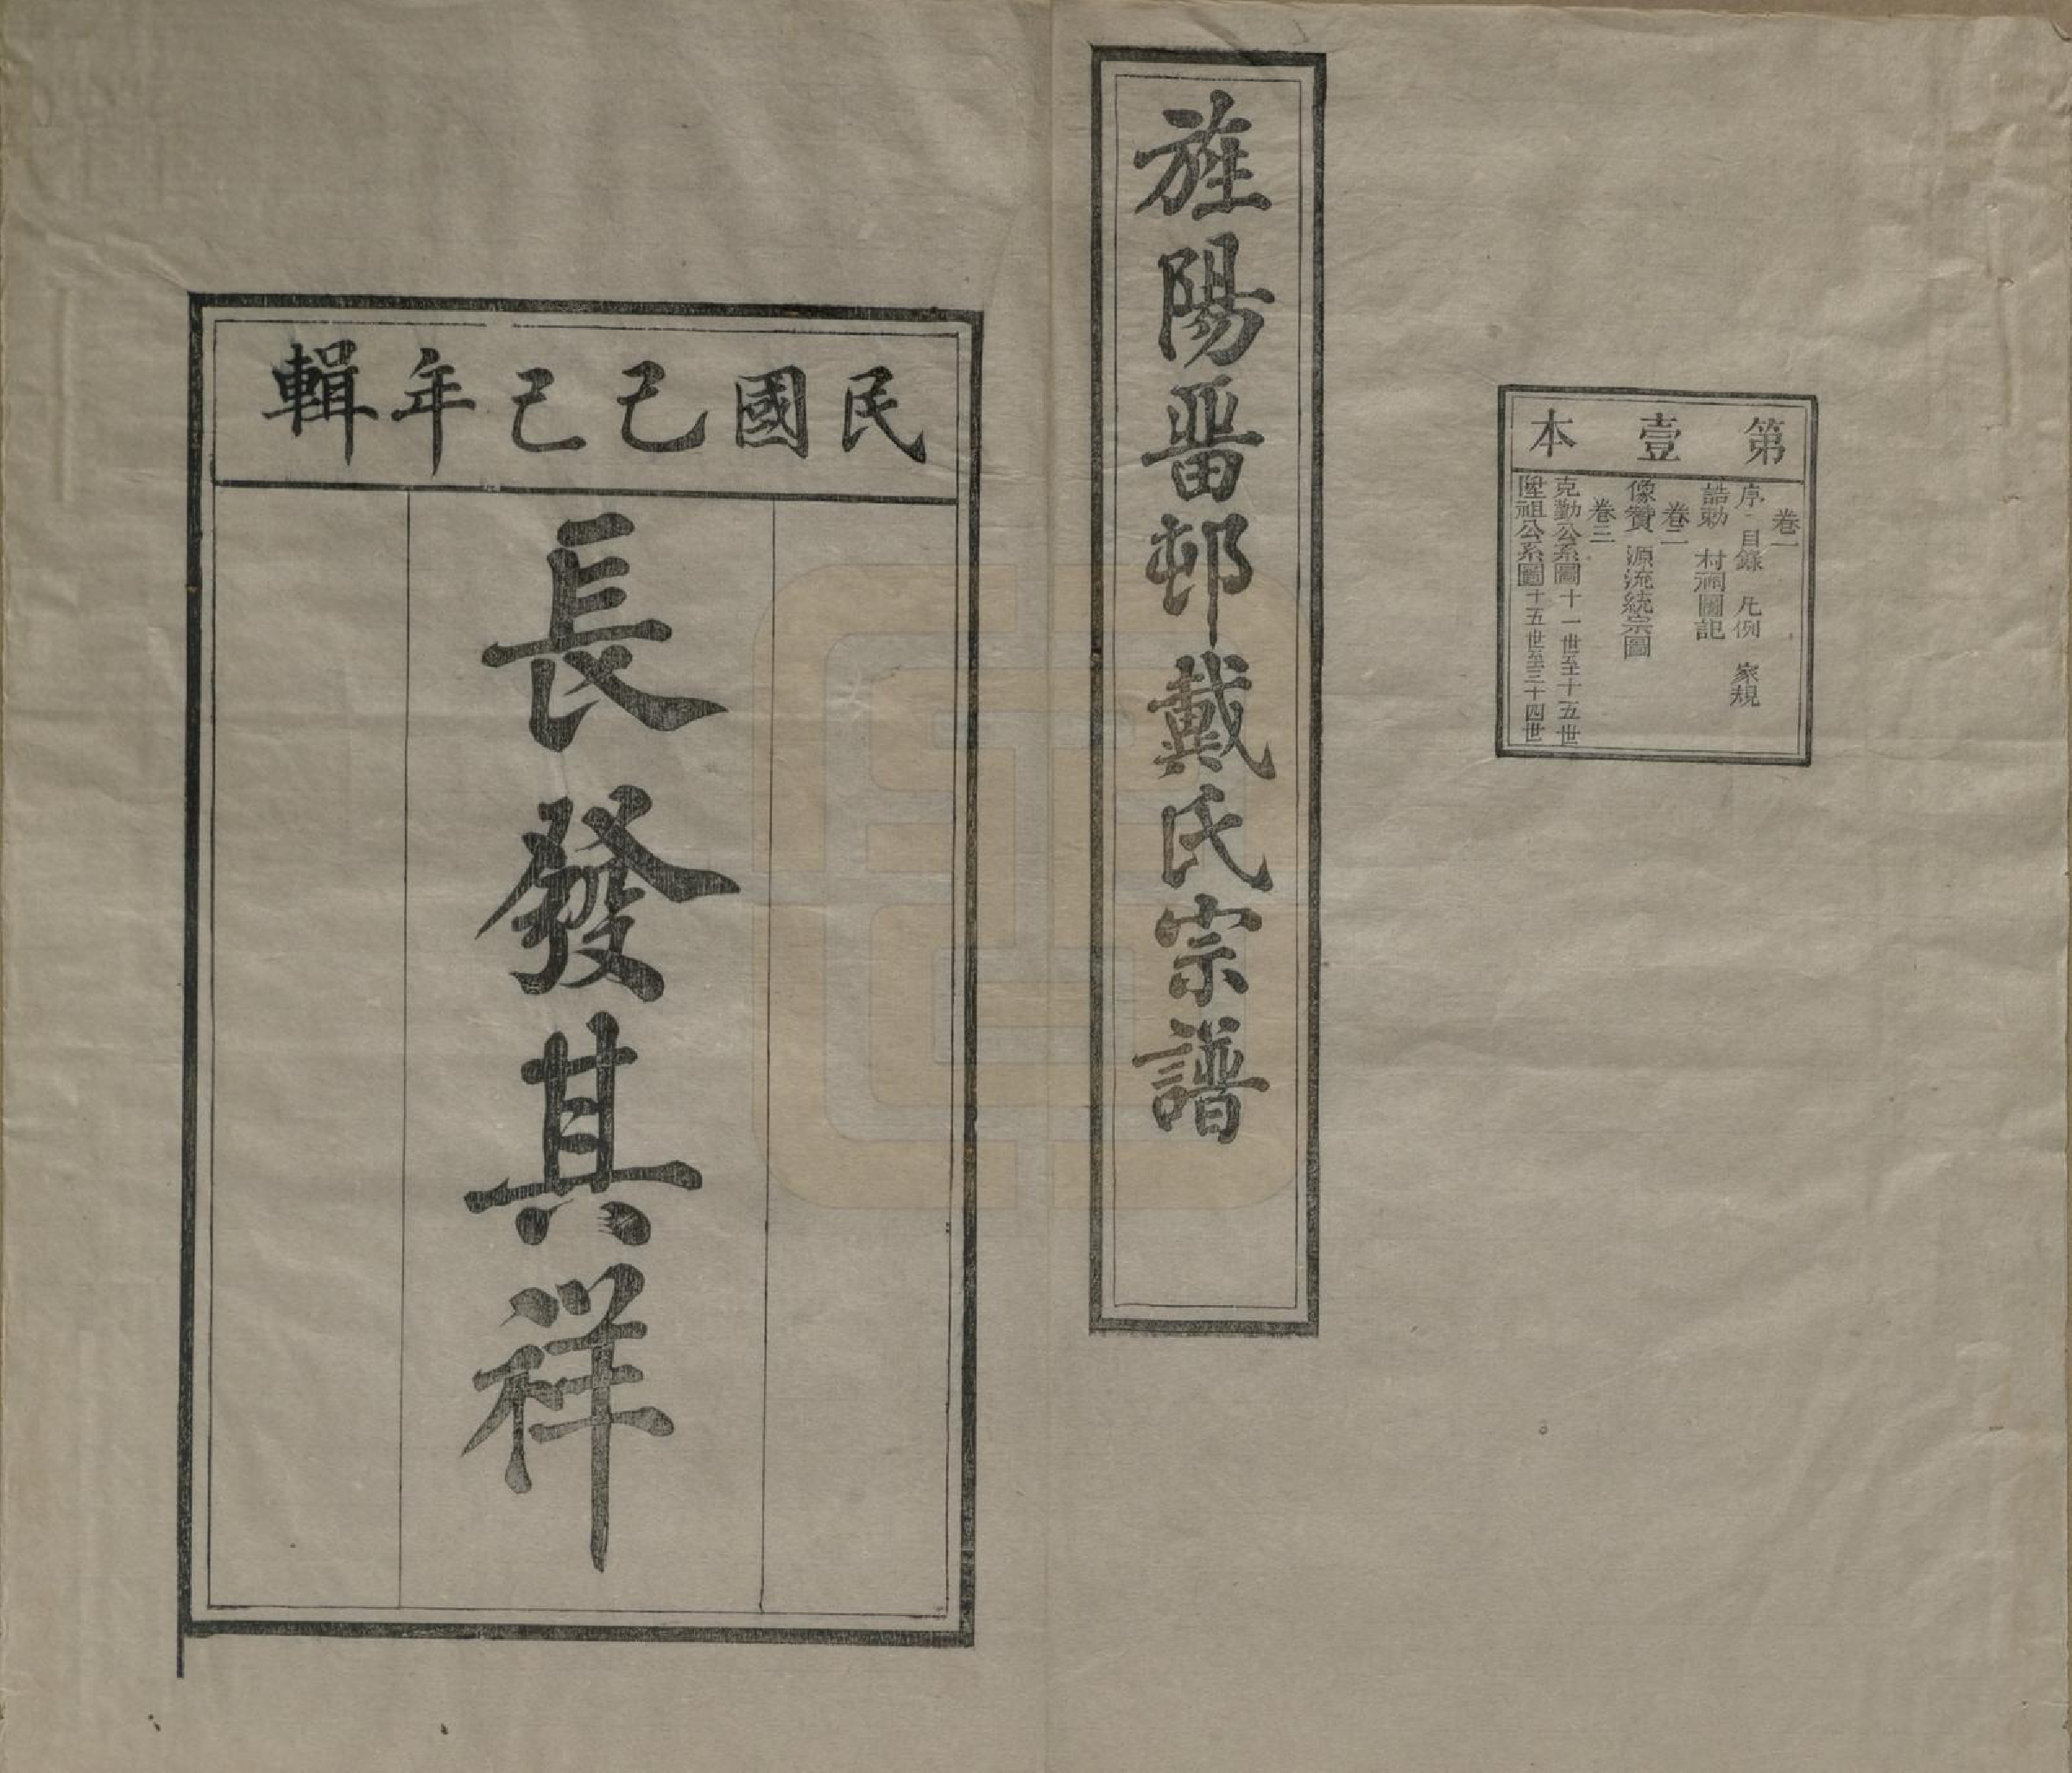 第壹本
卷一
序 目錄 凡例 家規
誥勅 村祠圖記
卷二
像贊 源流統宗圖
卷三
克勤公系圖十一世至十五世
陞祖公系圖十五世至三十四世
旌陽畨邨戴氏宗譜
民國己巳年輯
長發其祥